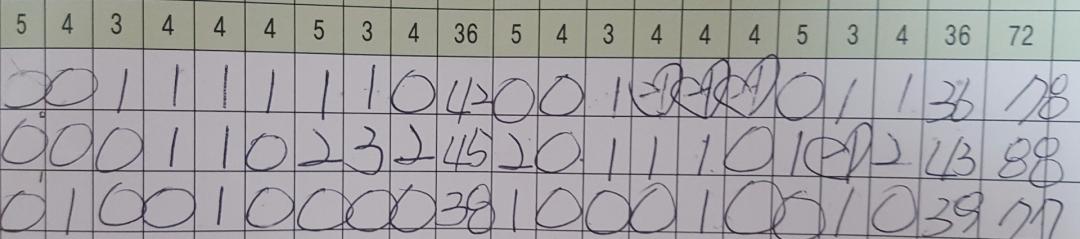 5 4 3 4 4 4 5 3 4 36 5 4 3 4 4 4 5 3 4 36 72
0 0 1 1 1 1 1 1 0 42 0 0 1 -1 -1 -1 0 1 1 36 78
0 0 0 1 1 0 2 3 2 45 2 0 1 1 1 0 1 -1 2 43 88
0 1 0 0 1 0 0 0 0 38 1 0 0 0 1 0 0 1 0 39 77